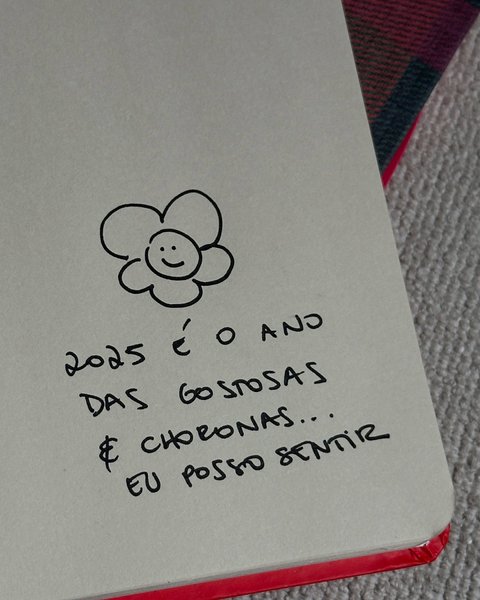 2025 É O ANO
DAS GOSTOSAS
& CHORONAS...
EU POSSO SENTIR